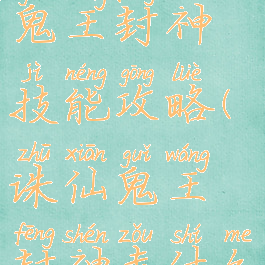 鬼王封神
jì néng gōng lüè
技能攻略(
zhū xiān guǐ wáng
诛仙鬼王
fēng shén zǒu shí me